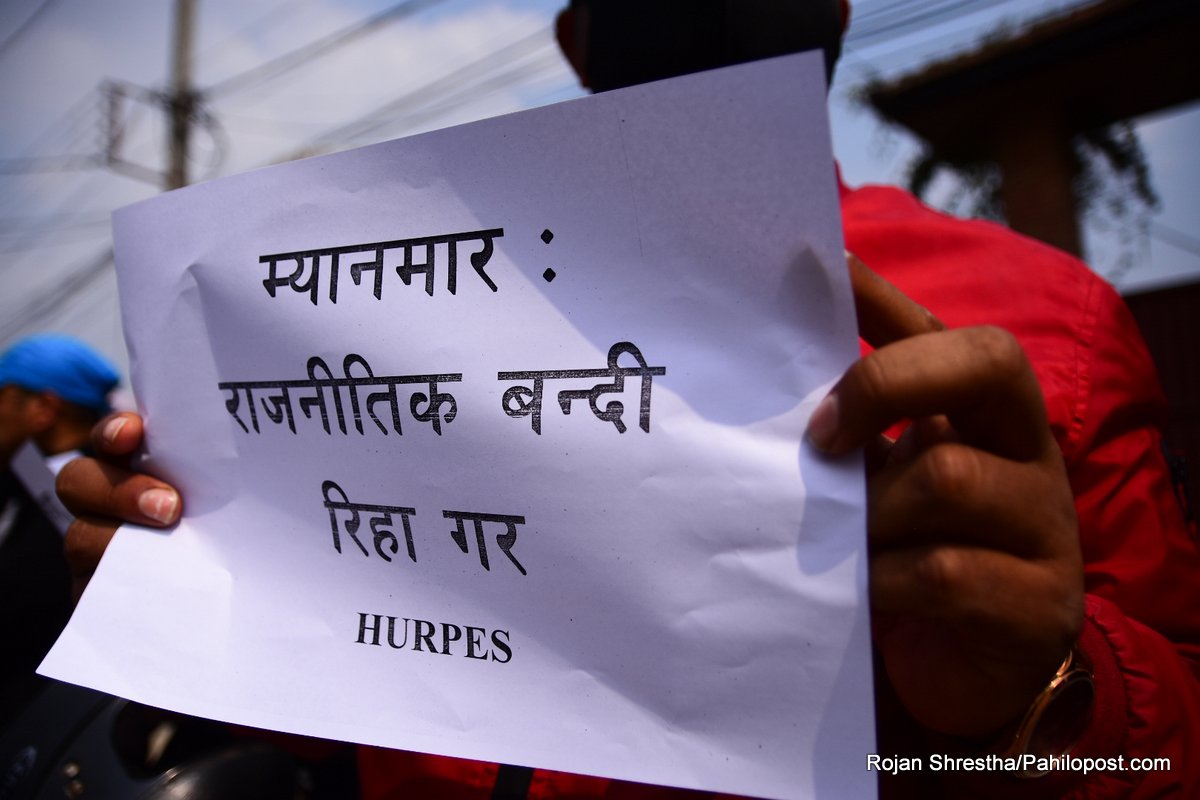 म्यानमार :
राजनीतिक बन्दी
रिहा गर
HURPES
Rojan Shrestha/Pahilopost.com